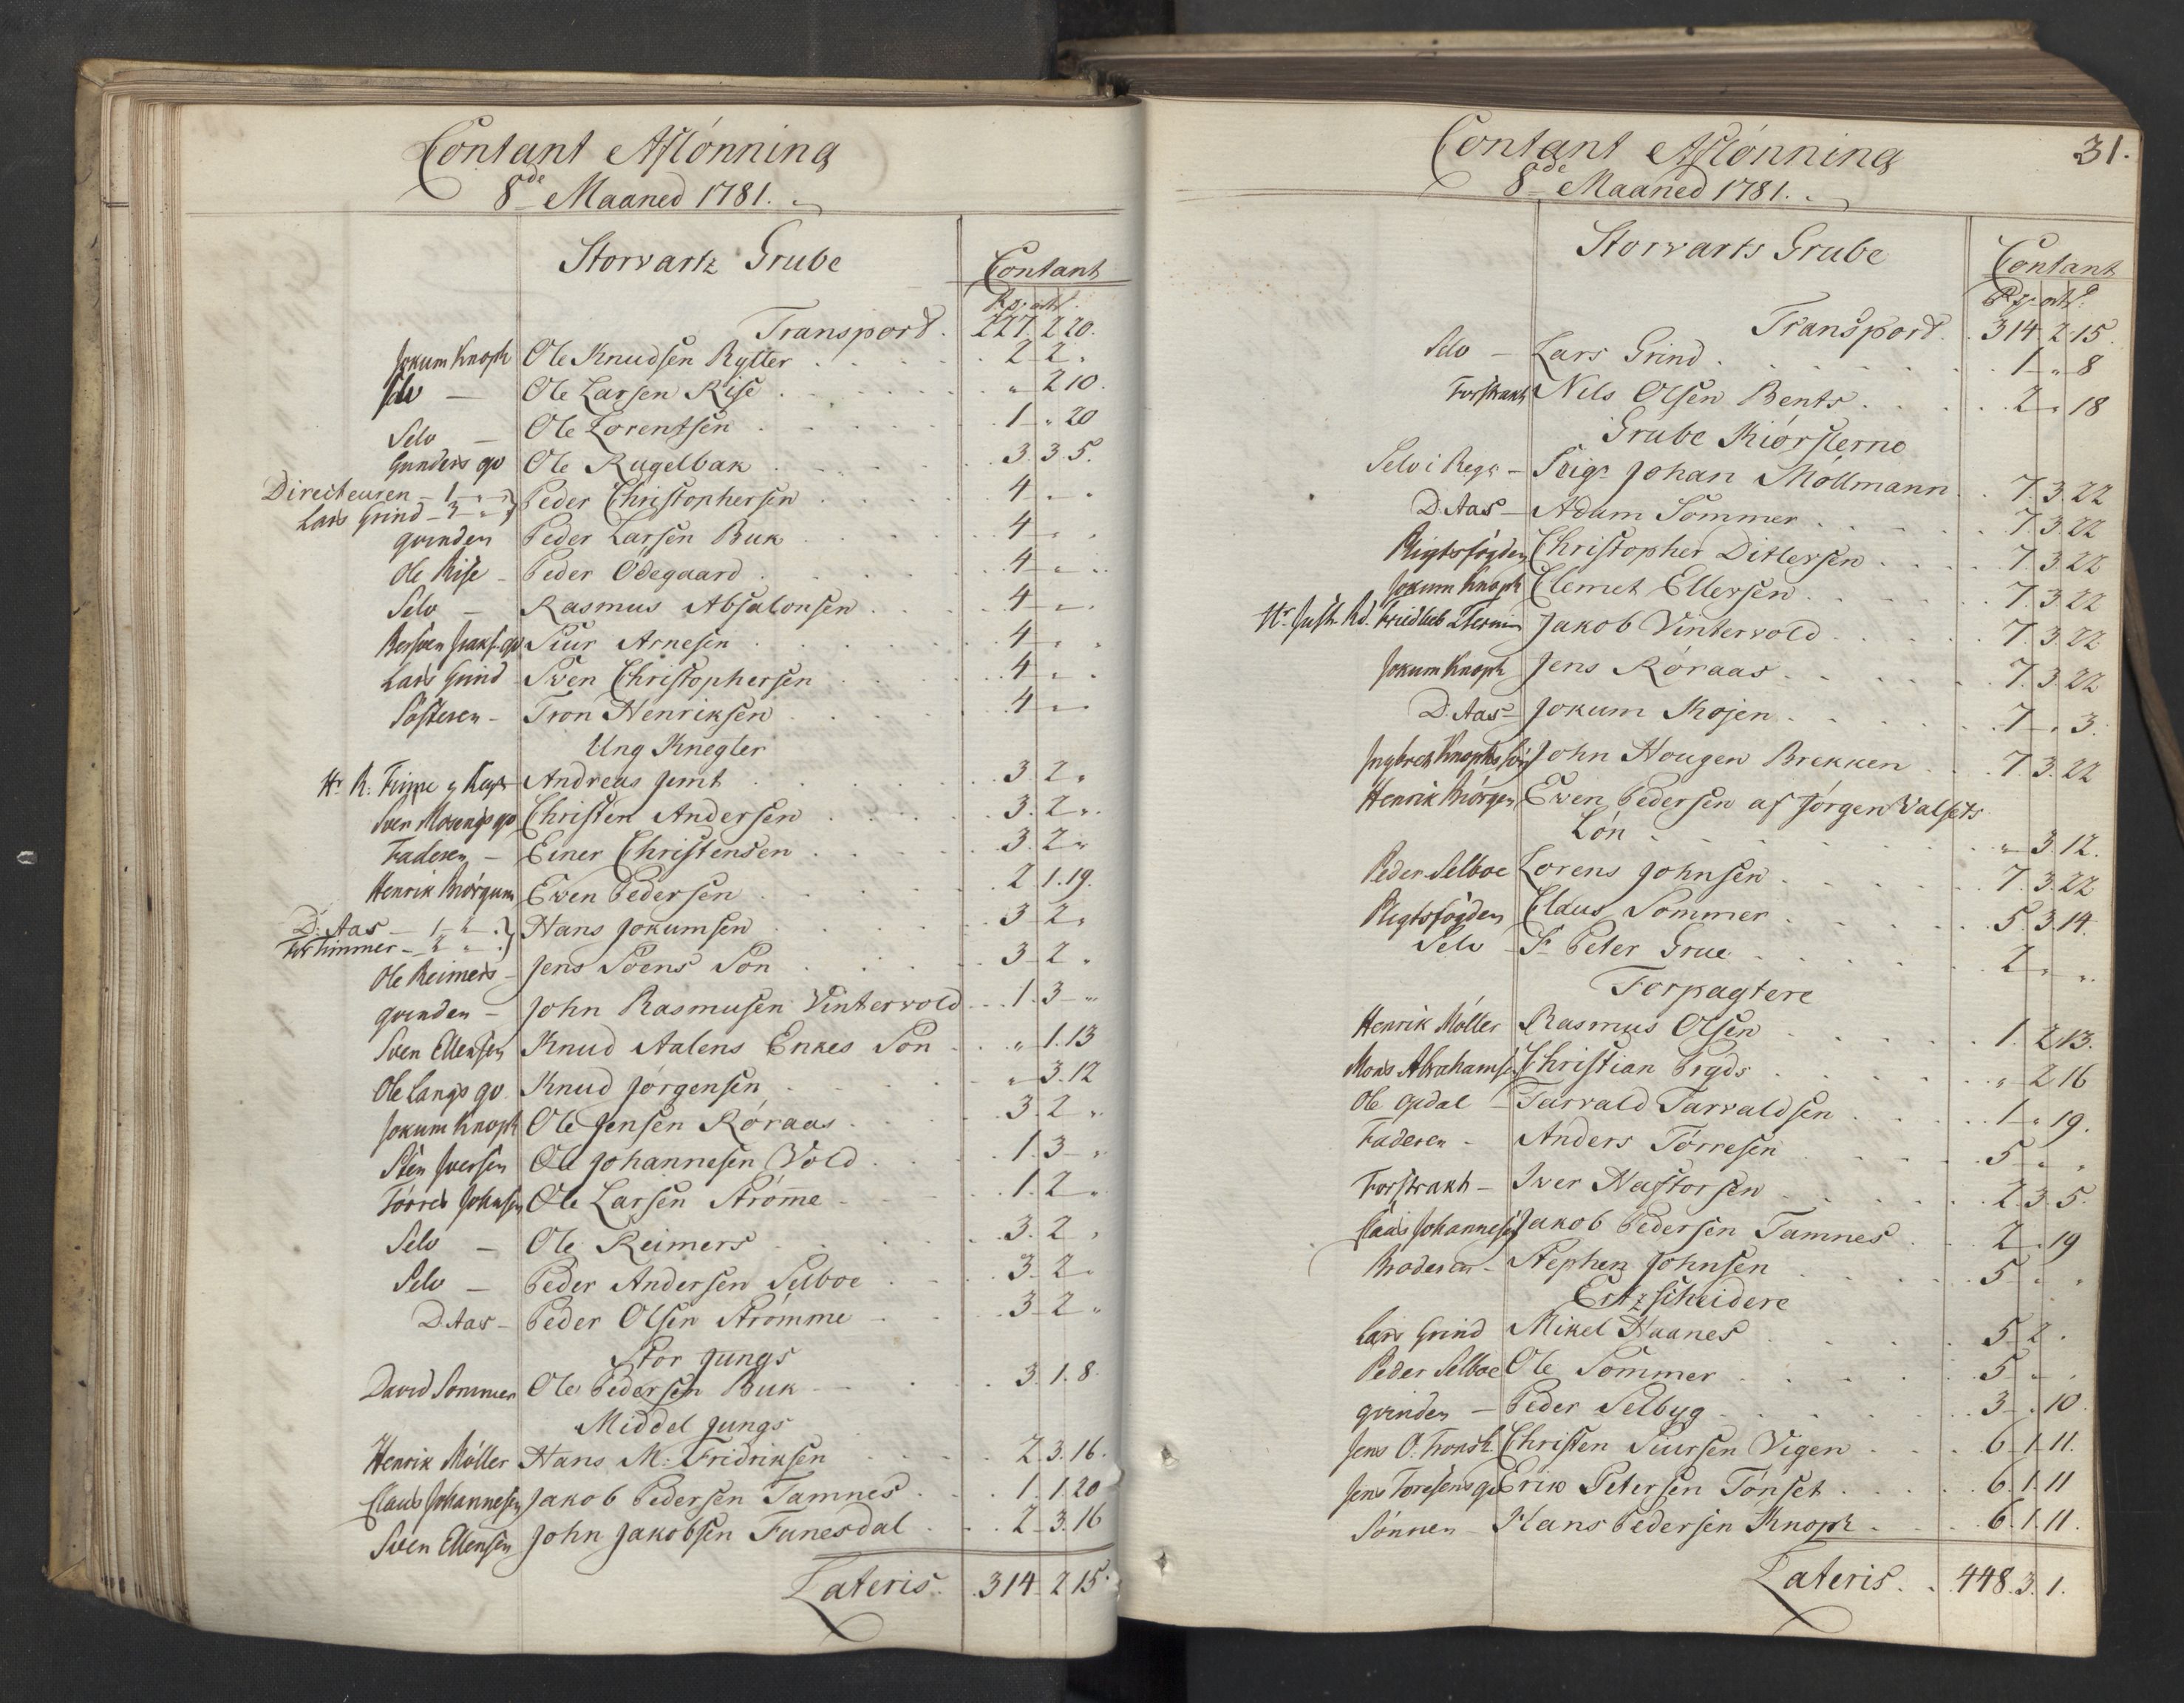 Contant Aflönning
8de Maaned 1781.
Storvartz Grube
Contant
Transport . 227. 2 20.
Jokum Knoph Ole Knudsen Rytter . . . 2 2 "
Selv — Ole Larsen Rise . . . " 2 10.
Selv — Ole Lorentsen . . . 1 " 20
Gunders qv Ole Kugelbak . . . 3. 3. 5.
Directeuren — 1 " " } Peder Christophersen . . . 4 " "
Lars Grind — 3 " "
qvinden Peder Larsen Buk . . . 4 " "
Ole Rise — Peder Ödegaard . . . 4 " "
Selv — Rasmus Absalonsen . . . 4 " "
qv Siur Arnesen . . . 4 " "
Lars Grind Sven Christophersen . . . 4 " "
Sösteren — Tron Henriksen . . . 4 " "
Ung Knegter
Hr. Andreas Jemt . . . 3. 2 "
Sven Mosengs qv Christen Andersen . . . 3. 2 "
Faderen — Einer Christensen . . . 3. 2 "
Henrik Even Pedersen . . . 2 1. 19.
D: Aas — 1 2 " } Hans Jokumsen . . . 3 2 "
Tör timmer — 2 " "
Ole Reimers — Jens Soens Sön . . . 3 2 "
qvinden — John Rasmusen Vintervold . . . 1. 3 "
Sven Ellensen Knud Aalens Enkes Sön . . . " 1. 13
Ole Langs qv. Knud Jörgensen . . . " 3. 12
Jokum Knoph Ole Jensen Röraas . . . 3. 2 "
Sten Iversen Ole Johannesen Vold . . . 1. 3 "
Törres Johnsen Ole Larsen Ström̅e . . . 1. 2 "
Selv — Ole Reimers . . . 3. 2 "
Selv — Peder Andersen Selboe . . . 3. 2 "
D. Aas — Peder Olsen Strömme . . . 3. 2 "
Stor Jungs
David Sommer Ole Pedersen Buk . . . 3. 1. 8.
Middel Jungs
Henrik Möller Hans M: Fridriksen . . . 2. 3. 16.
Claus Johannesen Jakob Pedersen Tamnes . . . 1. 1. 20
Sven Ellensen John Jakobsen Funesdal . . . 2 3. 16
Lateris . 314. 2 15.
Contant Aflönning
31.
8de Maaned 1781.
Storvarts Grube
Contant
Transport . 314 2. 15.
Selv — Lars Grind . . . 1 " 8
Forstrakt Nils Olsen Bents . . . 2 " 18
Grube Kiörslerne
Selv i Regn — Seigr Johan Möllmann . . 7. 3. 22
D. Aas — Adam Sommer . . . 7. 3. 22
Rigtsfögden Christopher Ditlersen . . . 7. 3. 22
Jokum Knoph Clemet Ellersen . . . 7. 3. 22
Hr. Just. Rd. Jakob Vintervold . . . 7. 3. 22
Jokum Knoph Jens Röraas . . . 7. 3. 22
D. Aas — Jokum Kojen . . . 7 " 3.
Ingbret Knophs Sön John Hougen Brekken . . 7. 3. 22
Henrik Even Pedersen af Jörgen Valsets
Lön . . . " 3. 12.
Peder Selboe Lorens Johnsen . . . 7. 3. 22
Rigtsfögden Claus Sommer . . . 5. 3. 14.
Selv — S. Peter Grue . . . 2 " "
Forpagtere
Henrik Möller Rasmus Olsen . . . 1. 2. 13.
Mons Abrahams. Christian Pryds . . . " 2 16
Ole Opdal — Tarvald Tarvaldsen . . . 1 " 19.
Faderen — Anders Törresen . . . 5 " "
Forstrakt — Iver Nastorsen . . . 2. 3. 5.
Claus Johannesen Jakob Pedersen Tamnes . . 2 " 19
Broderen — Stephen Johnsen . . . 5 " "
Ertzscheidere
Lars Grind Mikel Haanes . . . 5 2 "
Peder Selboe Ole Sommer . . . 5 " "
qvinden — Peder Selbyg . . . 3 " 10.
Jens O. Trons. Christen Siursen Vigen . . 6. 1. 11.
Jens Toresens qv Erik Petersen Tönset . . . 6. 1. 11
Sönnen — Hans Pedersen Knoph . . . 6. 1. 11.
Lateris . . 448. 3. 1.